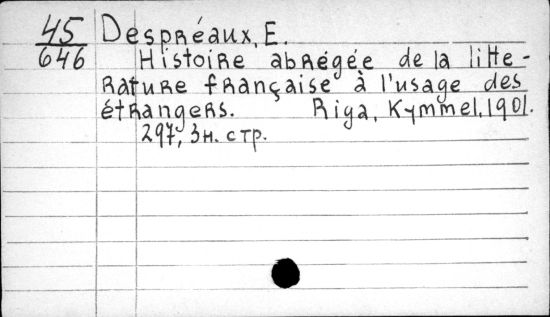 45
646
Despréaux, E.
Histoire abrégée de la litte-
rature française à l'usage des
étrangers. Riga, Kymmel, 1901.
297, 3н. стр.